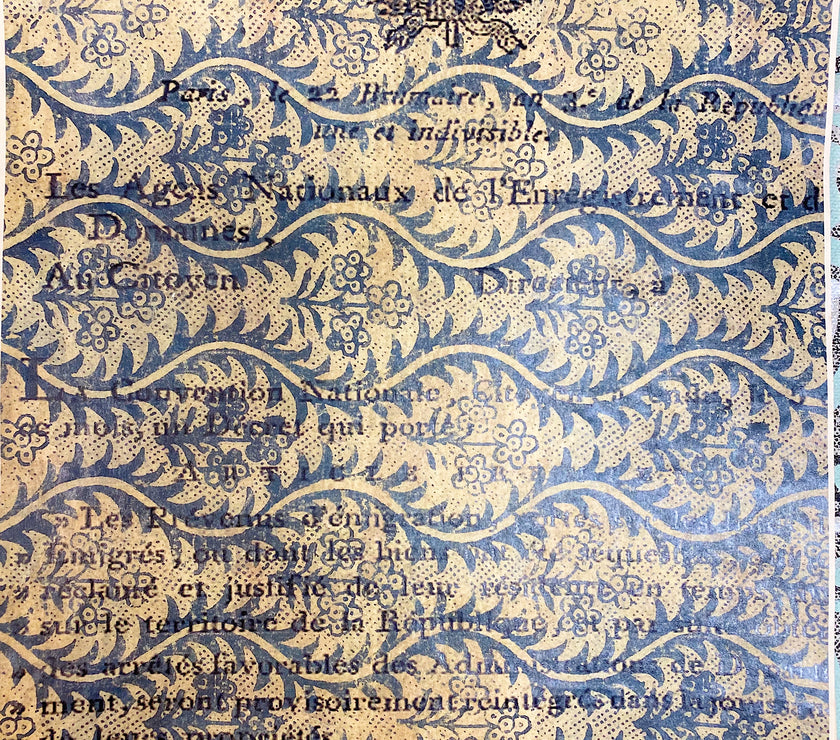 Paris, le 22 Brumaire, an 3.e de la Républiqu
une et indivisible.
Les Agens Nationaux de l'Enregistrement et d
Domaines,
Au Citoyen Directeur, à
La Convention Nationale, Citoyen, a rendu, le
ce mois, un Décret qui porte,
ARTICLE
» Les Prévenus d'émigration, portés sur les
» Emigrés, ou dont les biens ont été séquestrés,
» réclamé et justifié de leur résidence en temps
» sur le territoire de la République, et par suite
» des arrêtés favorables des Administrations de Dépar
» ment, seront provisoirement réintégrés dans la jouissan
de leurs propriétés